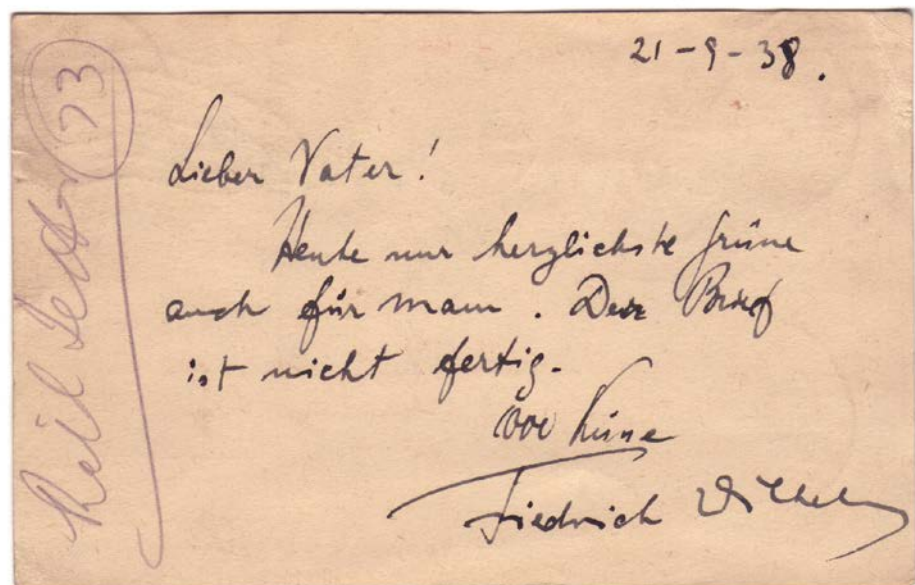 21-9-38.
Lieber Vater!
Heute nur herzlichste Grüsse
auch für mam. Der Brief
ist nicht fertig.
000 Küsse
Friedrich Wilhelm
73